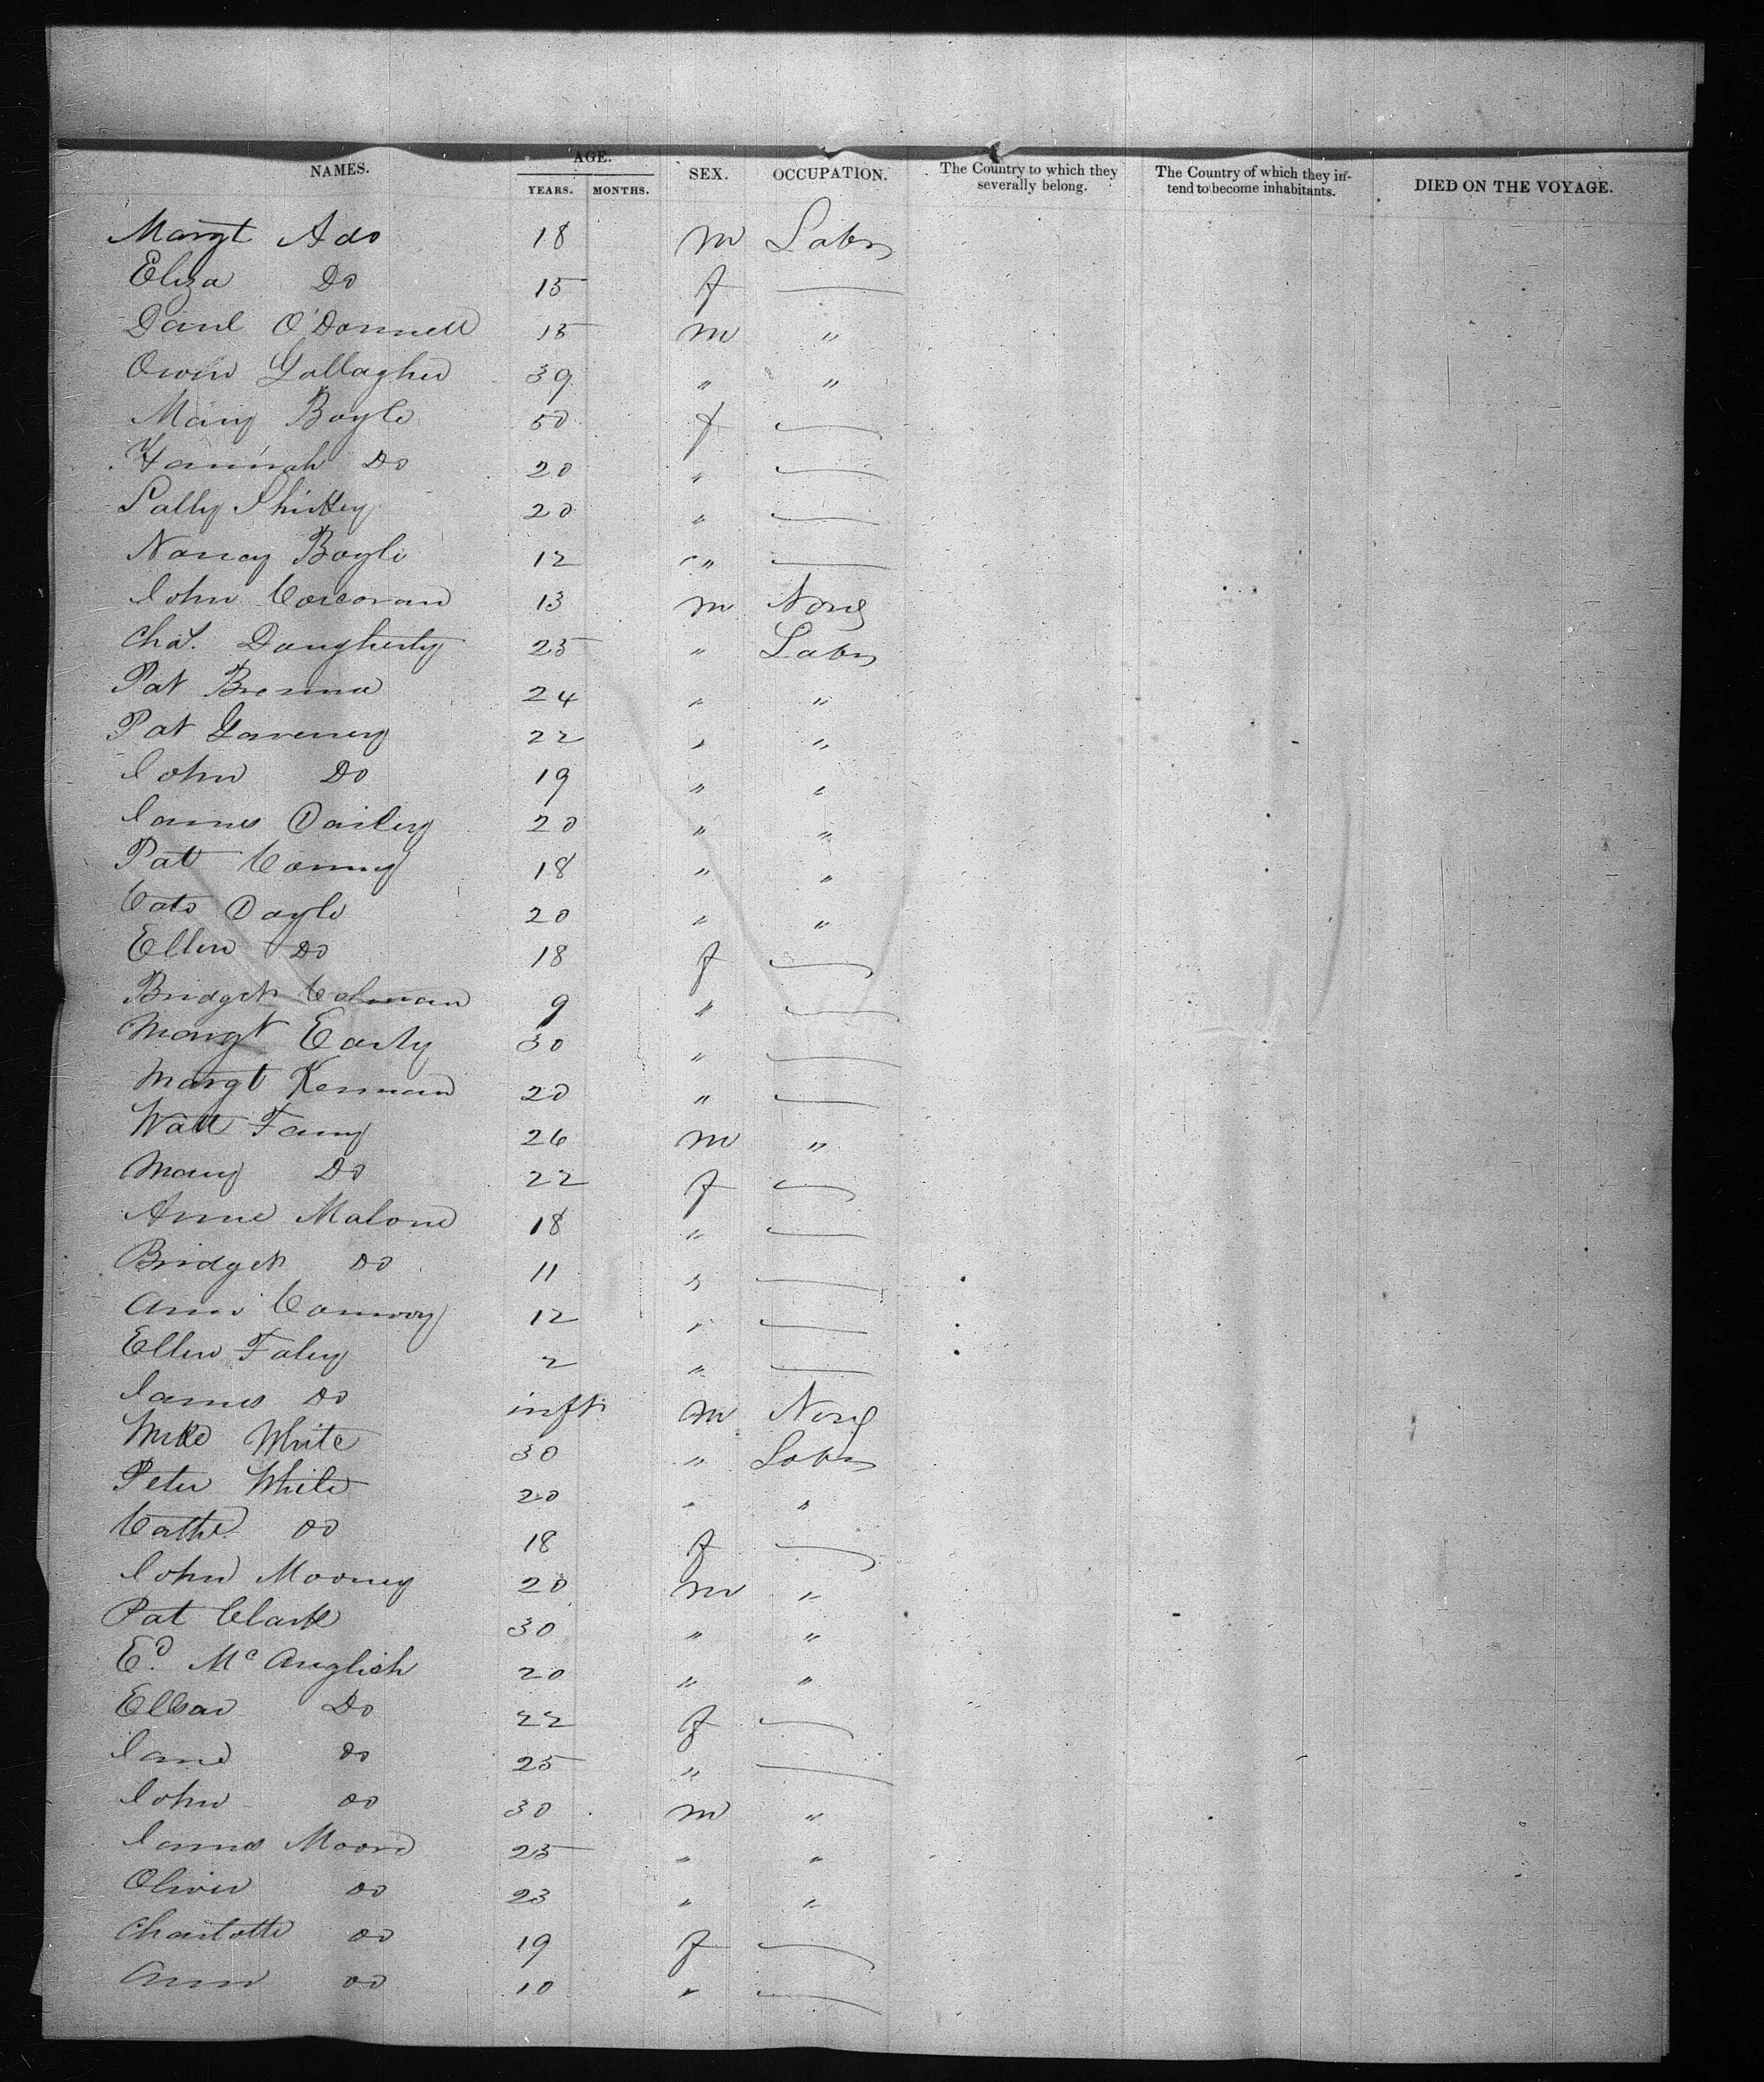 NAMES. AGE. YEARS. MONTHS. SEX. OCCUPATION. The Country to which they severally belong. The Country of which they intend to become inhabitants. DIED ON THE VOYAGE.
Margt Ado 18 m Labr
Eliza Do 15 f —
Danl O'Donnell 15 m "
Owin Gallagher 39 " "
Mary Boyle 50 f —
Hannah Do 20 " —
Sally 20 " —
Nancy Boyle 12 " —
John Corcoran 13 m None
Chas. Daugherty 25 " Labr
Pat 24 " "
Pat Gaveney 22 " "
John Do 19 " "
James Dailey 20 " "
Pat 18 " "
Cate Doyle 20 " "
Ellen Do 18 f —
Bridget Colman 9 " —
Margt Early 30 " —
Margt Kernan 20 " —
Watt 26 m "
Mary Do 22 f —
Anne Malone 18 " —
Bridget Do 11 " —
Ann Conway 12 " —
Ellen Faley 2 " —
James Do inft m None
Mike White 30 " Labr
Peter White 20 " "
Cathe Do 18 f —
John Mooney 20 m "
Pat Clark 30 " "
Ed. McAnglish 20 " "
Do 22 f —
Jane Do 25 " —
John Do 30 m "
James Moore 25 " "
Oliver Do 23 " "
Charlotte Do 19 f —
Ann Do 10 " —